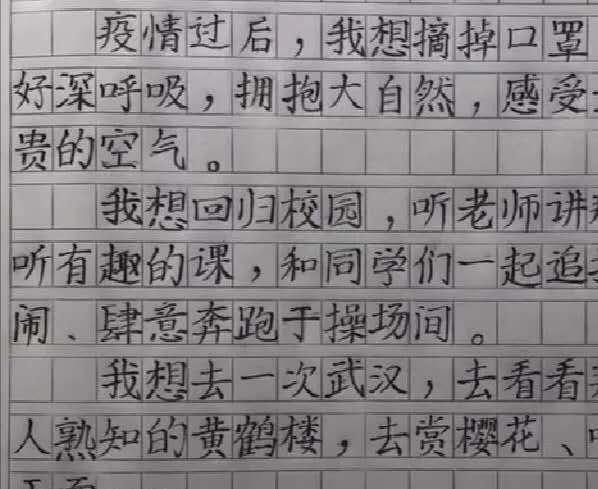 疫情过后，我想摘掉口罩
好深呼吸，拥抱大自然，感受
贵的空气。
我想回归校园，听老师讲
听有趣的课，和同学们一起追
闹、肆意奔跑于操场间。
我想去一次武汉，去看看
人熟知的黄鹤楼，去赏樱花、